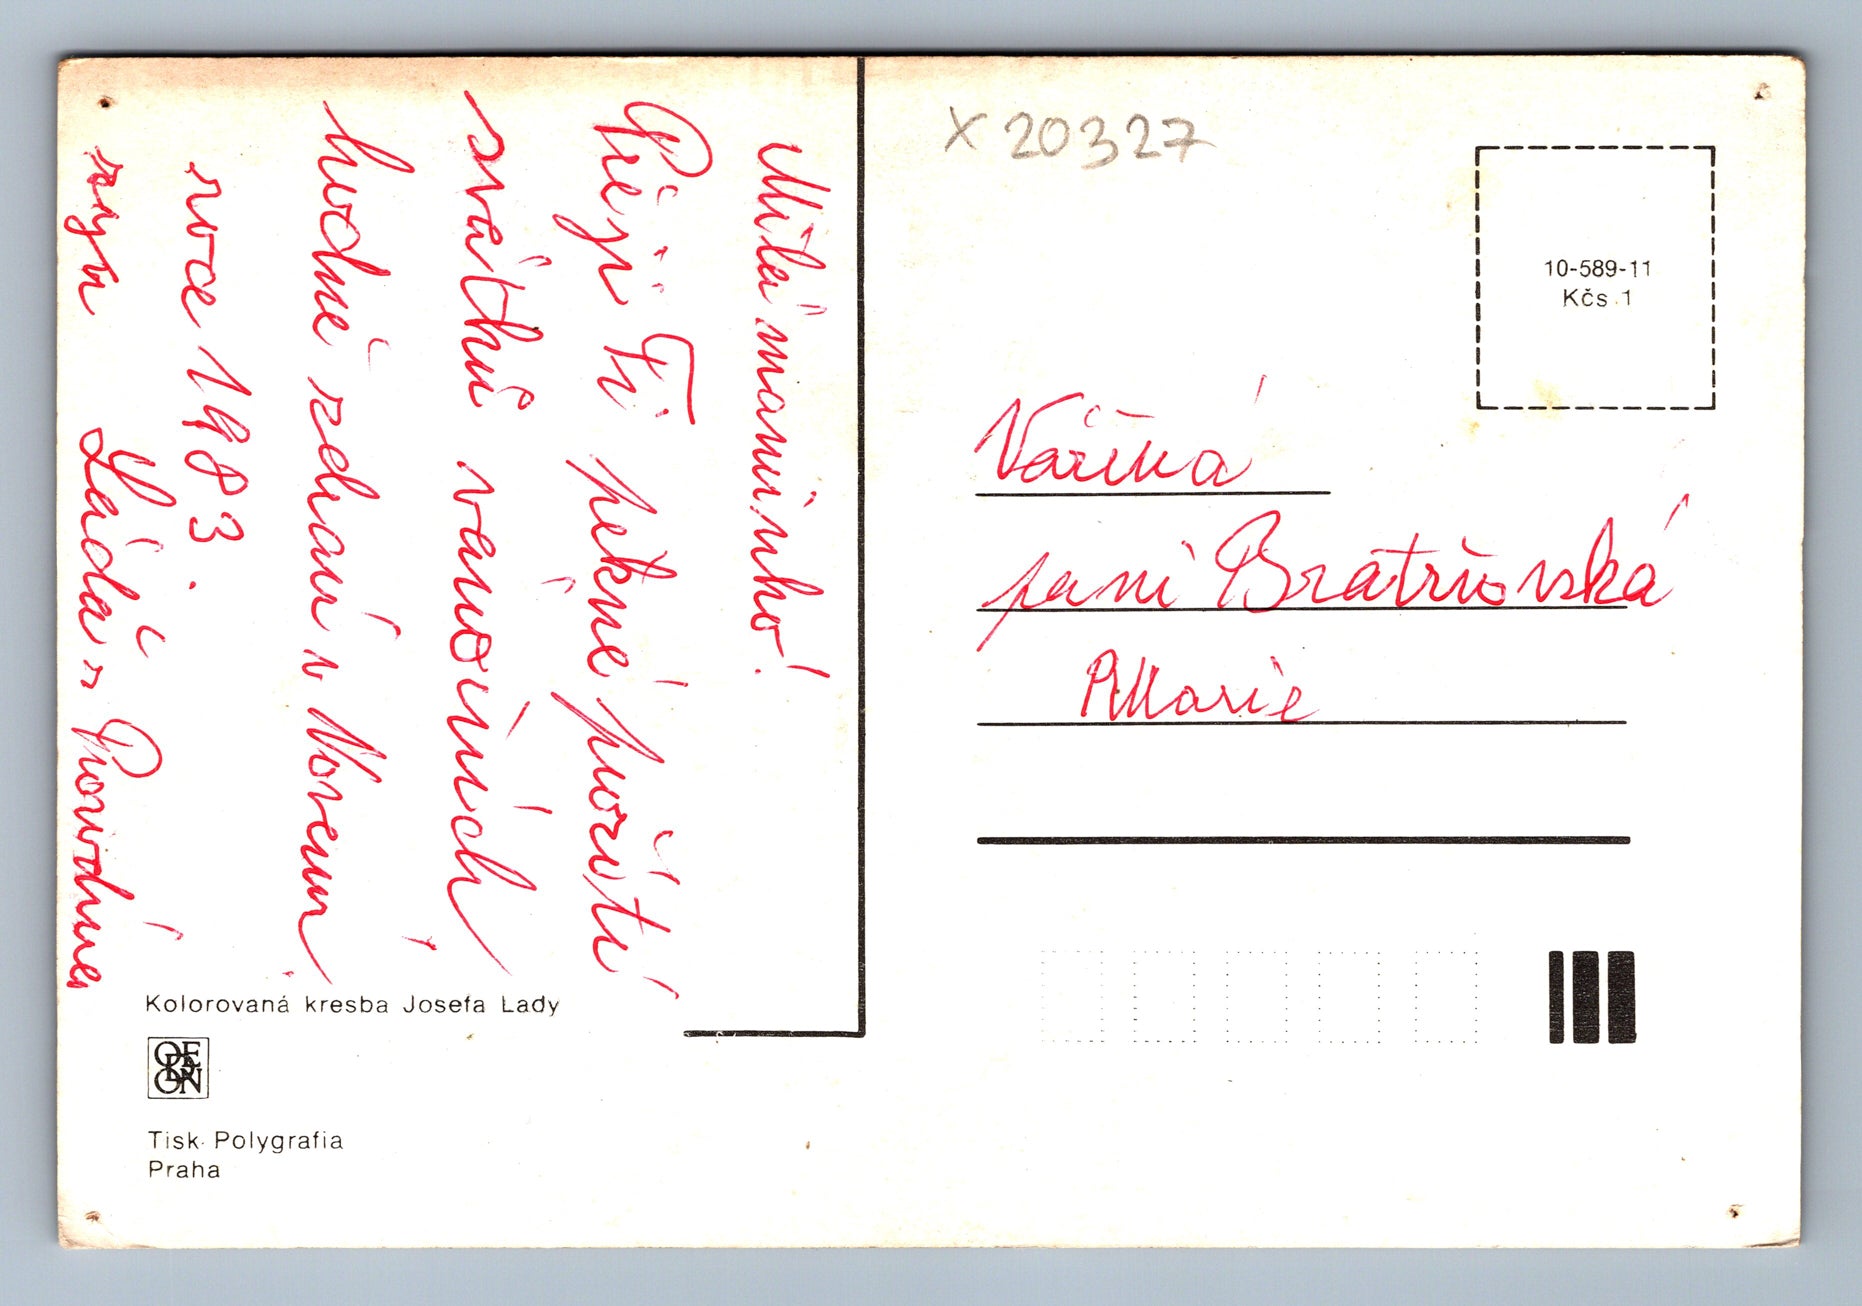 Milá maminko!
Přeji Ti pěkné použití
svátků vánočních
hodně zdraví v Novém
roce 1983.
Láďa s Rodinou
Kolorovaná kresba Josefa Lady
ODEON
Tisk Polygrafia
Praha
X 20327
10-589-11
Kčs 1
Vážená
paní Bratršovská
Marie